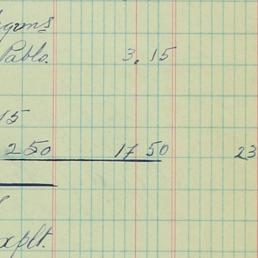 Pablo. 3.15
15
250 17 50 23
xplt.